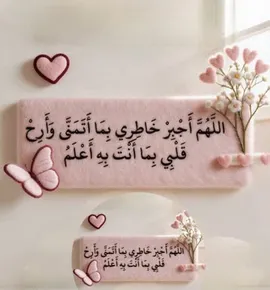 اللَّهُمَّ أَجْبِرْ خَاطِرِي بِمَا أَتَمَنَّى وَأَرِحْ
قَلْبِي بِمَا أَنْتَ بِهِ أَعْلَمُ
اللَّهُمَّ أَجْبِرْ خَاطِرِي بِمَا أَتَمَنَّى وَأَرِحْ
قَلْبِي بِمَا أَنْتَ بِهِ أَعْلَمُ